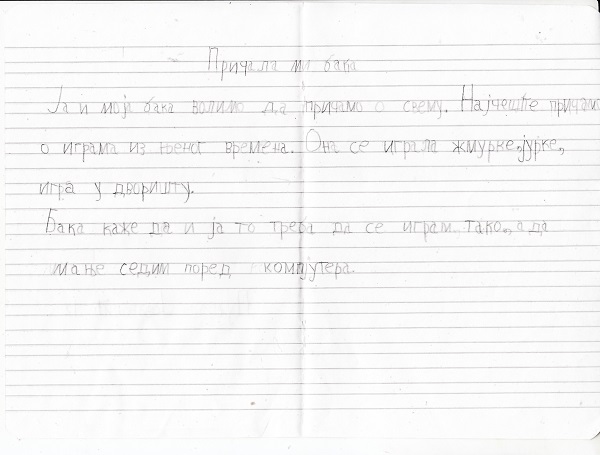 Причала ми бака
Ја и моји бака волимо да причамо о свему. Најчешће причамо
о играма из њеног времена. Она се играла жмурке, јурке,
игра у дворишту.
Бака каже да и ја то треба да се играм тако, а да
мање седим поред компјутера.